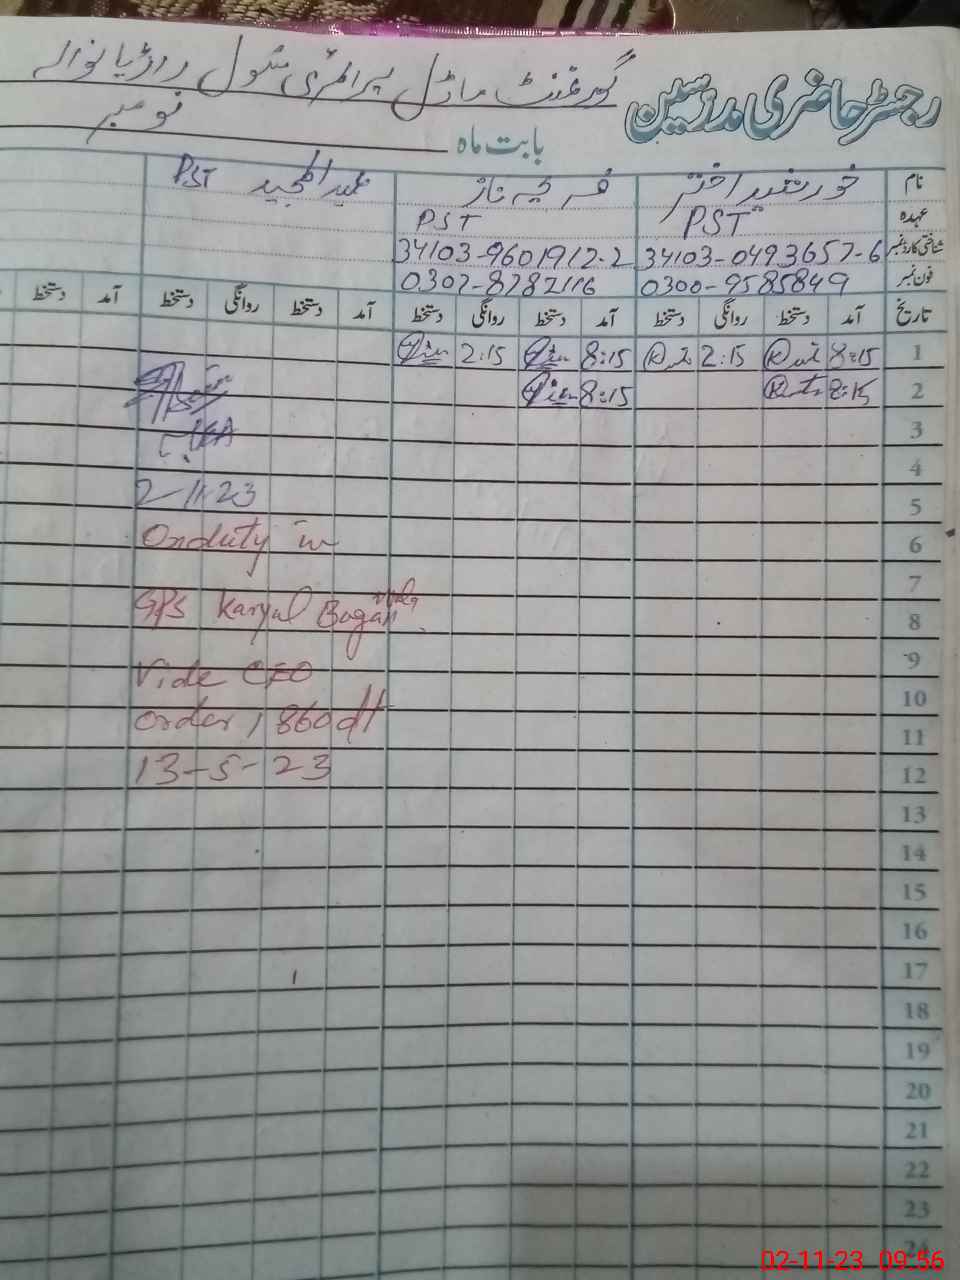 رجسٹر حاضری مدرسین گورنمنٹ ماڈل پرائمری سکول راڑیانوالہ
بابت ماہ نومبر
نام خورشید اختر فرحیہ ناز عبدالمجید PST
عہدہ PST PST
شناختی کارڈ نمبر 34103-0493657-6 34103-9601912-2
فون نمبر 0300-9585849 0307-8782116
تاریخ آمد دستخط روانگی دستخط آمد دستخط روانگی دستخط آمد دستخط روانگی دستخط آمد دستخط
1 8:15 2:15 8:15 2:15
2 8:15 8:15
3
4
5 2-11-23
6 Onduty in
7
8 GPS Karyal Bagan
9
10 Vide CEO
11 order 1860 dt
12 13-5-23
13
14
15
16
17
18
19
20
21
22
23
24
02-11-23 09:56